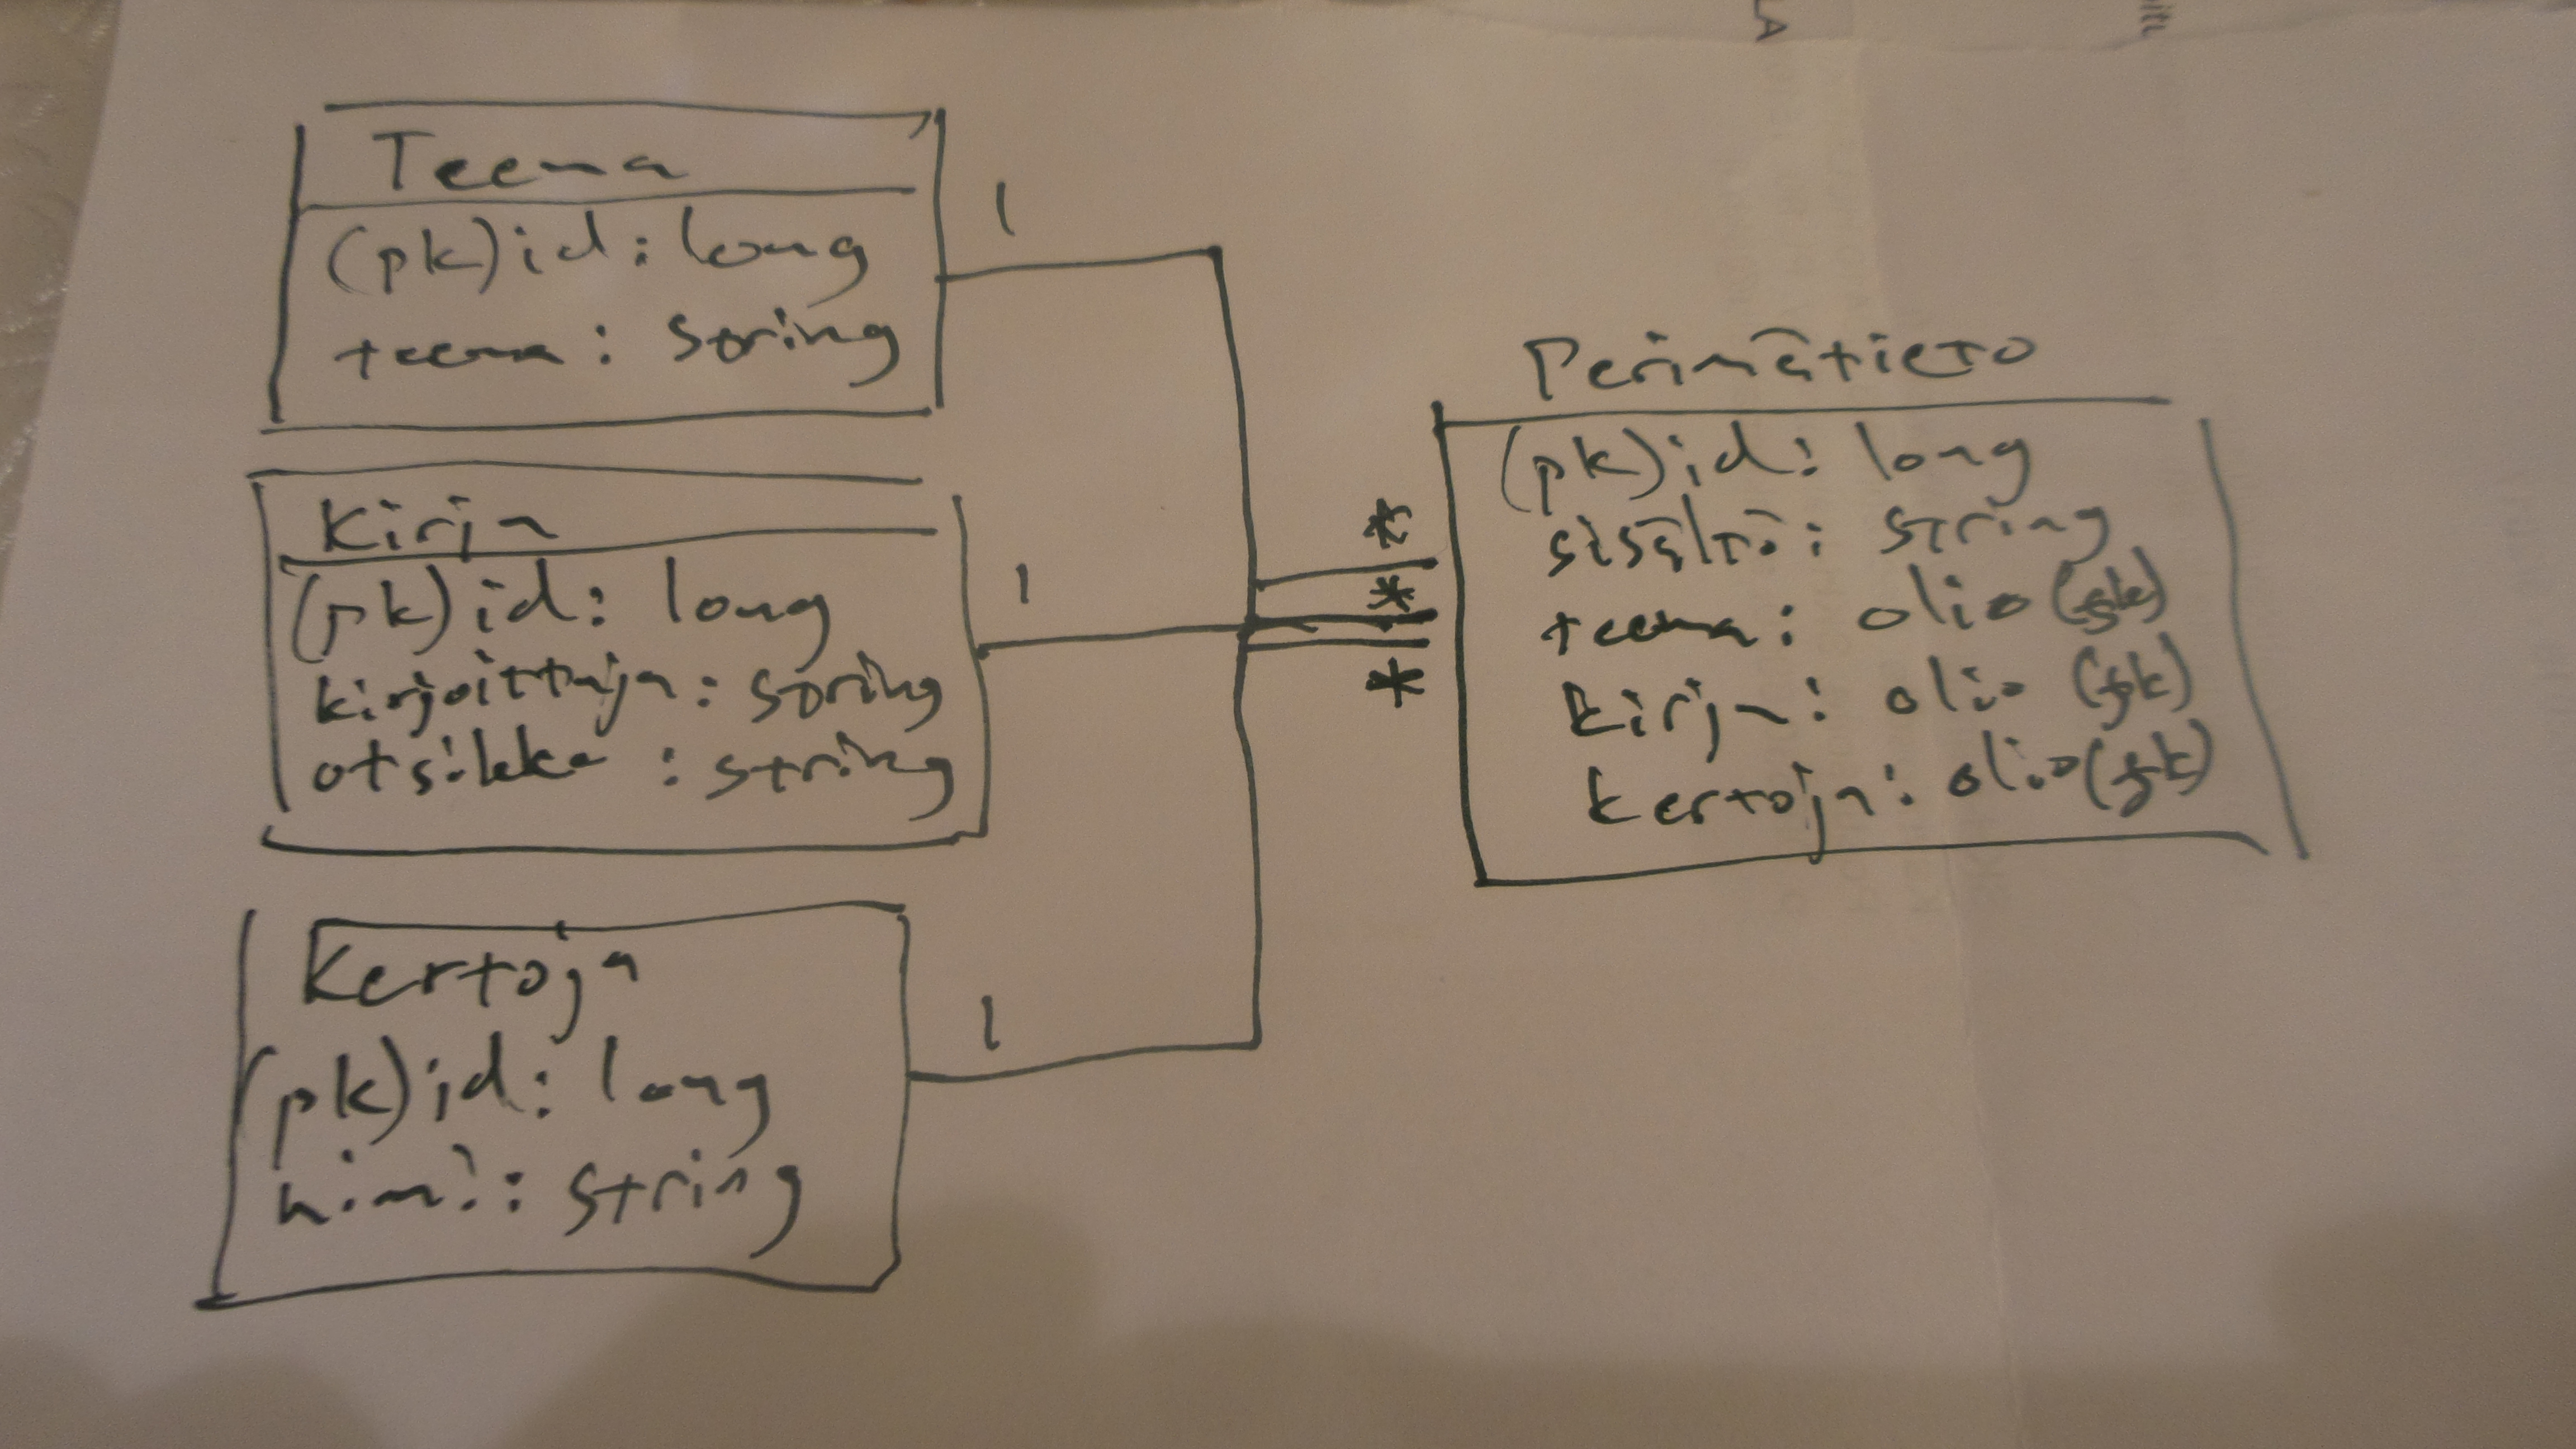 Teema
(pk)id: long
teema: string
1
Kirja
(pk)id: long
kirjoittaja: string
otsikko: string
1
Kertoja
(pk)id: long
nimi: string
1
*
*
*
Perimätieto
(pk)id: long
sisältö: string
teema: olio (fk)
kirja: olio (fk)
kertoja: olio (fk)
LA